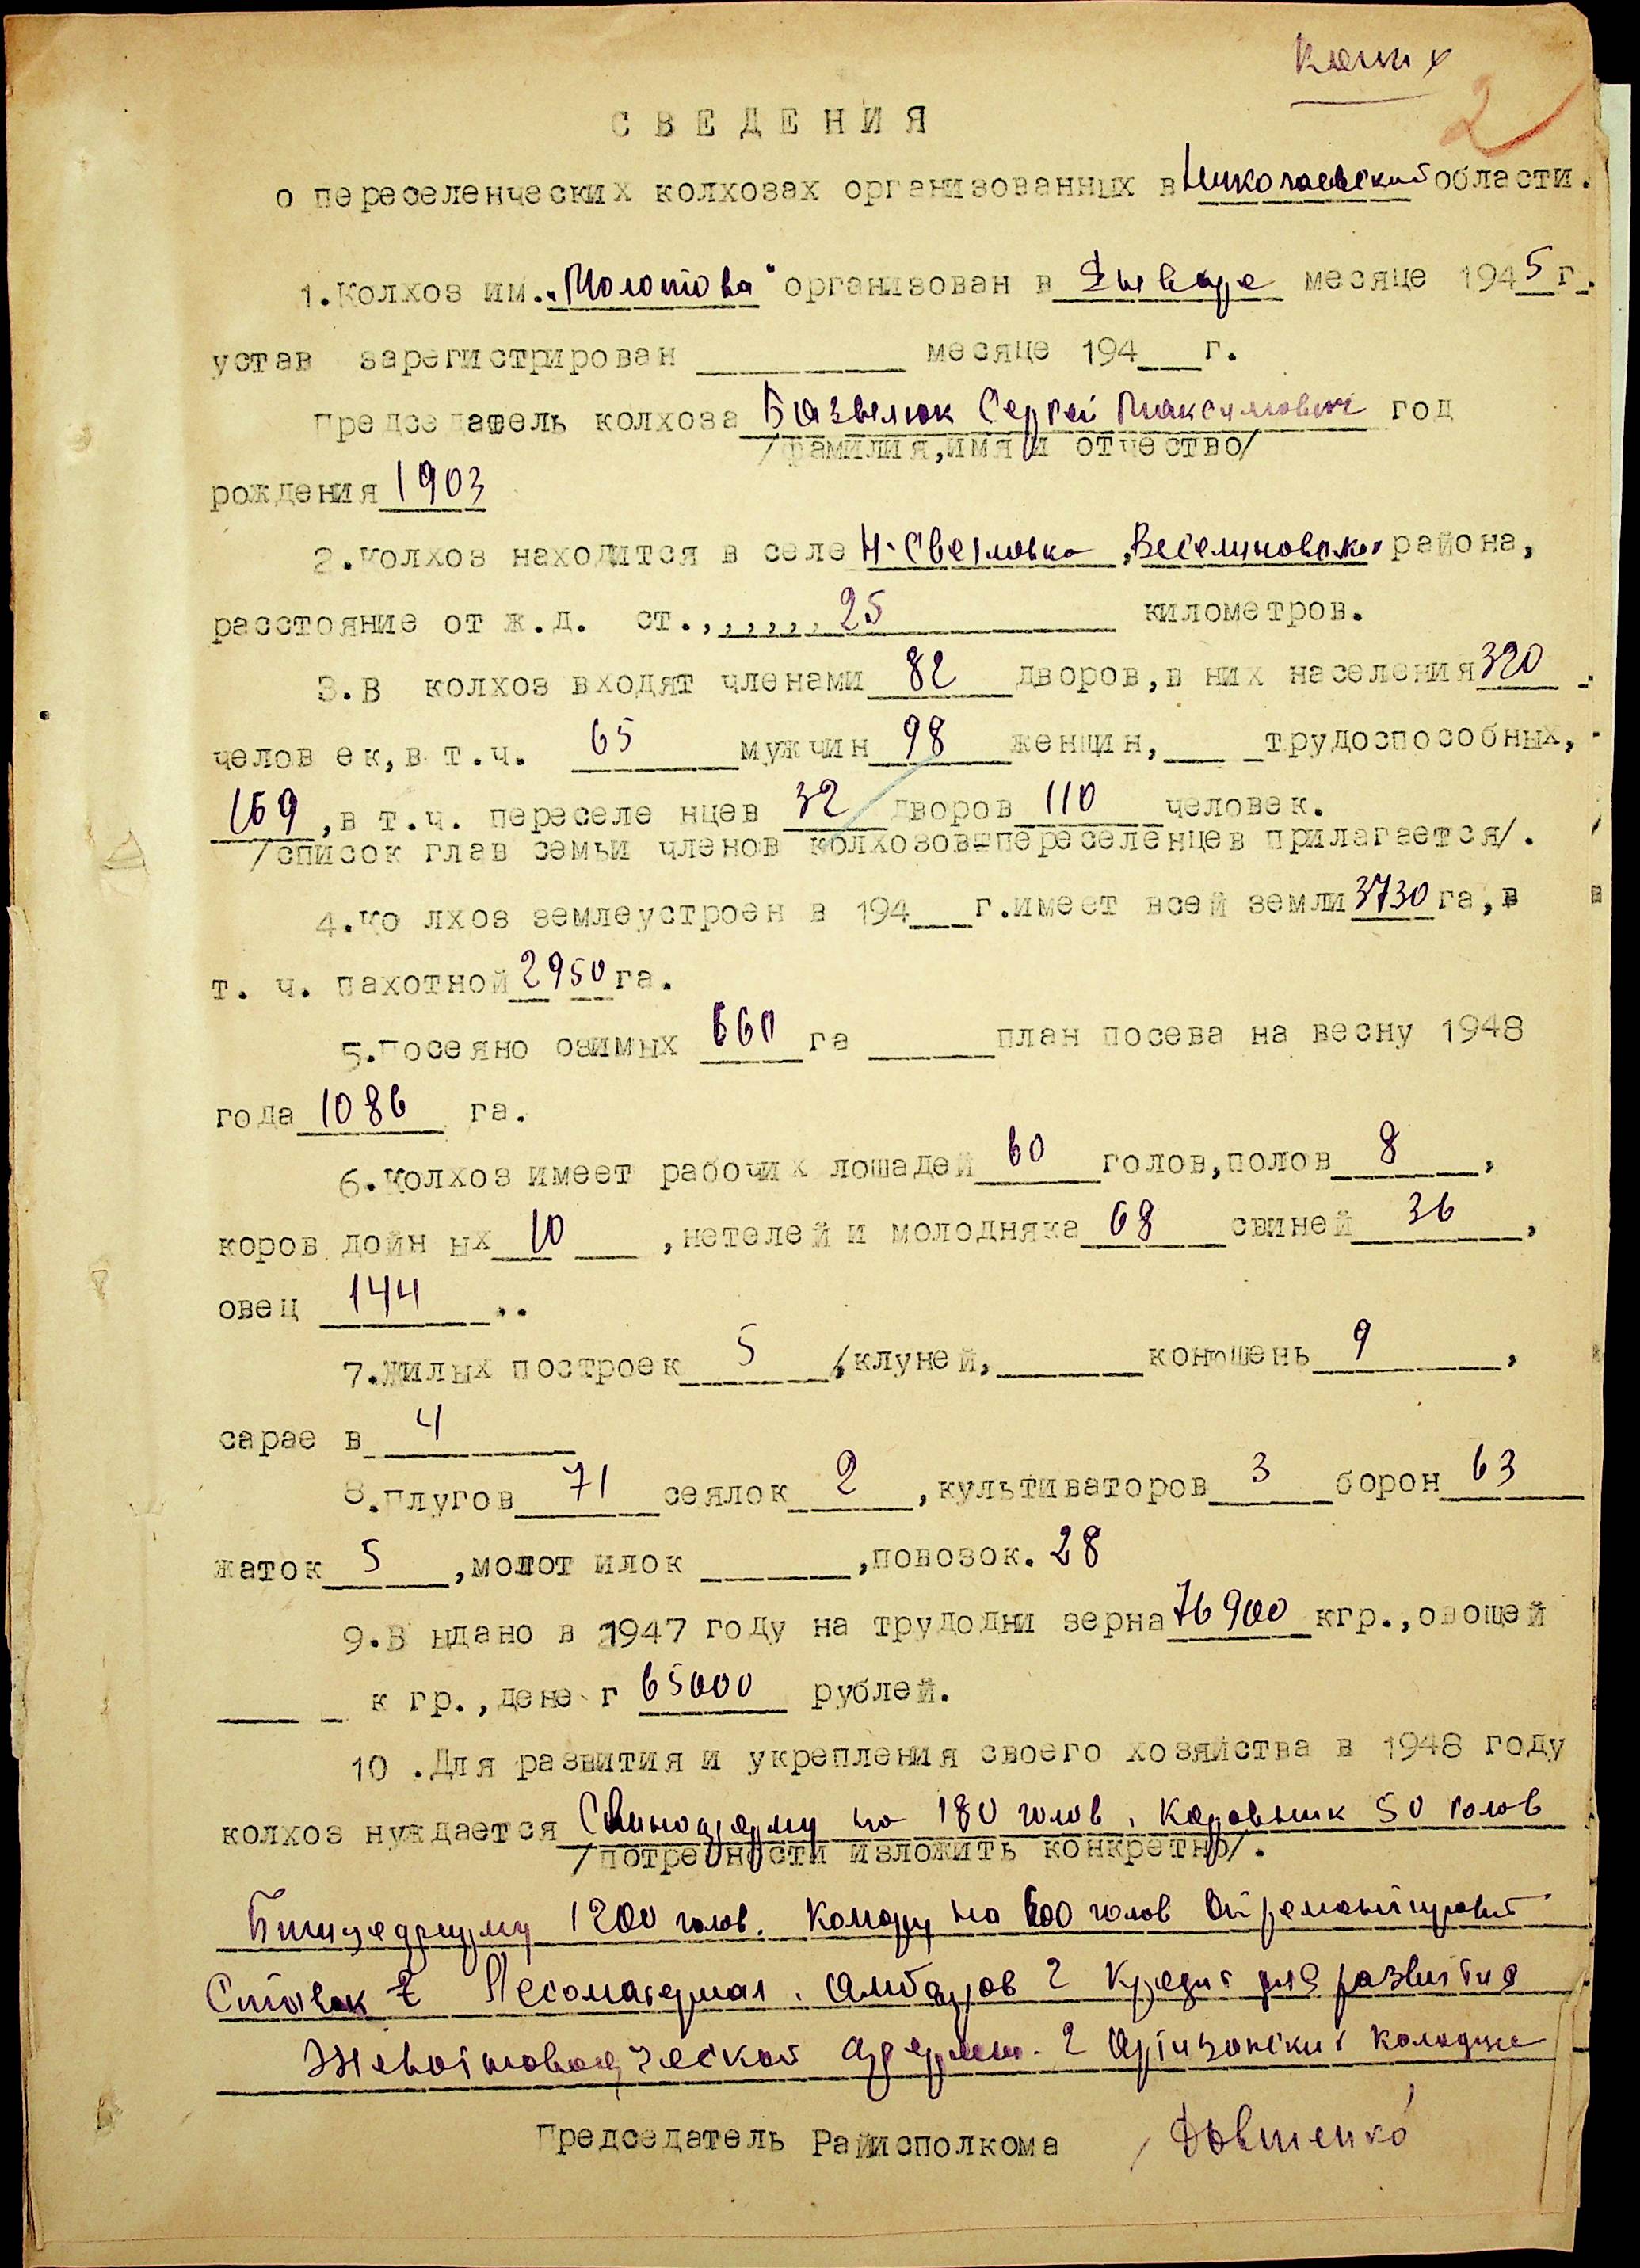 Копия
2
СВЕДЕНИЯ
о переселенческих колхозах организованных в Николаевской области.
1.Колхоз им. "Молотова" организован в Январе месяце 1945 г.
устав зарегистрирован ______ месяце 194__г.
Председатель колхоза Базвелюк Сергей Максимович год
/фамилия,имя и отчество/
рождения 1903
2.Колхоз находится в селе Н-Светловка, Веселиновског района,
расстояние от ж.д. ст.,,,,,, 25 километров.
3.В колхоз входят членами 82 дворов,в них населения 320
человек,в т.ч. 65 мужчин 98 женщин,___ трудоспособных,
169,в т.ч. переселенцев 32 дворов 110 человек.
/список глав семьи членов колхозов=переселенцев прилагается/.
4.Колхоз землеустроен в 194___г.имеет всей земли 3730 га,в
т. ч. пахотной 2950 га.
5.Посеяно озимых 660 га ______план посева на весну 1948
года 1086 га.
6.Колхоз имеет рабочих лошадей 60 голов,полов 8,
коров дойных 10 ,нетелей и молодняка 68 свиней 36,
овец 144..
7.Жилых построек 5,клуней,______конюшень 9,
сараев 4
8.Плугов 71 сеялок 2,культиваторов 3 борон 63
жаток 5,молотилок ______,повозок. 28
9.Выдано в 1947 году на трудодни зерна 76900 кгр.,овощей
___ кгр.,денег 65000 рублей.
10.Для развития и укрепления своего хозяйства в 1948 году
колхоз нуждается Свиноферму на 180 голов, Коровник 50 голов
/потребности изложить конкретно/.
Птицеферму 1200 голов. на 600 голов Отремонтироват
Ставок 2 Лесоматериал. Амбаров 2 Кредит для развития
Животноводческой ферм. 2 Артизонских колодце
Председатель Райисполкома Довженко